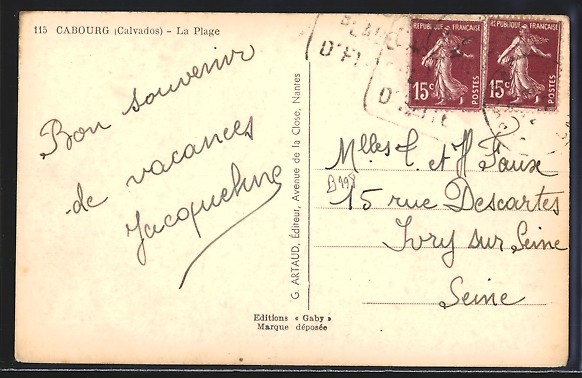 115 CABOURG (Calvados) - La Plage
Bon souvenir
de vacances
Jacqueline
G. ARTAUD, Éditeur, Avenue de la Close, Nantes
Editions « Gaby »
Marque déposée
RÉPUBLIQUE FRANÇAISE
15c POSTES
RÉPUBLIQUE FRANÇAISE
15c POSTES
Melles et Faux
B198
15 rue Descartes
Ivry sur Seine
Seine